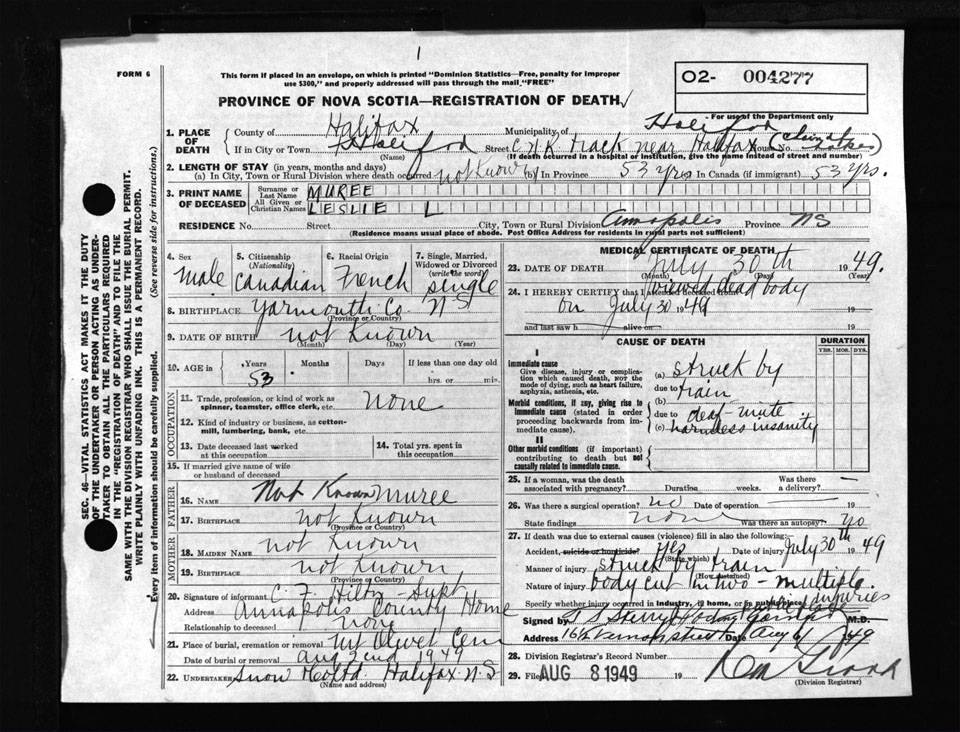 1
FORM 6
This form if placed in an envelope, on which is printed "Dominion Statistics—Free, penalty for improper
use $300," and properly addressed will pass through the mail "FREE"
PROVINCE OF NOVA SCOTIA—REGISTRATION OF DEATH
O2- 004277
For use of the Department only
SEC. 46—VITAL STATISTICS ACT MAKES IT THE DUTY
OF THE UNDERTAKER OR PERSON ACTING AS UNDER-
TAKER TO OBTAIN ALL THE PARTICULARS REQUIRED
IN THE "REGISTRATION OF DEATH" AND TO FILE THE
SAME WITH THE DIVISION REGISTRAR WHO SHALL ISSUE THE BURIAL PERMIT.
WRITE PLAINLY WITH UNFADING INK. THIS IS A PERMANENT RECORD.
Every item of information should be carefully supplied. (See reverse side for instructions.)
1. PLACE OF DEATH County of Halifax Municipality of Halifax
If in City or Town Halifax Street C N R Track near Halifax House No. (Chain Lakes)
(Name) (If death occurred in a hospital or institution, give the name instead of street and number)
2. LENGTH OF STAY (in years, months and days)
(a) In City, Town or Rural Division where death occurred not Known (b) In Province 53 yrs In Canada (if immigrant) 53 yrs.
3. PRINT NAME OF DECEASED Surname or Last Name MUREE
All Given or Christian Names LESLIE L
RESIDENCE No. Street City, Town or Rural Division Annapolis Province NS
(Residence means usual place of abode. Post Office Address for residents in rural parts not sufficient)
4. Sex male
5. Citizenship (Nationality) Canadian
6. Racial Origin French
7. Single, Married, Widowed or Divorced (write the word) single
8. BIRTHPLACE Yarmouth Co. N S
(Province or Country)
9. DATE OF BIRTH not Known
(Month) (Day) (Year)
10. AGE in Years 53 Months Days If less than one day old
hrs. or min.
OCCUPATION
11. Trade, profession or kind of work as
spinner, teamster, office clerk, etc. none
12. Kind of industry or business, as cotton-
mill, lumbering, bank, etc.
13. Date deceased last worked
at this occupation
14. Total yrs. spent in
this occupation
15. If married give name of wife
or husband of deceased
FATHER
16. Name Not Known Muree
17. Birthplace not Known
(Province or Country)
MOTHER
18. Maiden Name not Known
19. Birthplace not Known
(Province or Country)
20. Signature of informant C. F. Supt
Address Annapolis County Home
Relationship to deceased none
21. Place of burial, cremation or removal Mt Olivet Cem
Date of burial or removal Aug 2nd 1949
22. Undertaker Snow & Co Ltd. Halifax N.S
(Name and address)
MEDICAL CERTIFICATE OF DEATH
23. DATE OF DEATH July 30th 1949.
(Month) (Day) (Year)
24. I HEREBY CERTIFY that I attended deceased from viewed dead body
on July 30 1949 19
and last saw h alive on 19
CAUSE OF DEATH DURATION
YRS. MOS. DYS.
I
Immediate cause
Give disease, injury or complica-
tion which caused death, NOT the
mode of dying, such as heart failure,
asphyxia, asthenia, etc.
(a) struck by
due to train
Morbid conditions, if any, giving rise to
immediate cause (stated in order
proceeding backwards from im-
mediate cause).
(b)
due to deaf-mute
(c) harmless insanity
II
Other morbid conditions (if important)
contributing to death but not
causally related to immediate cause.
25. If a woman, was the death
associated with pregnancy? Duration weeks. Was there a delivery? —
26. Was there a surgical operation? no Date of operation 19
State findings none Was there an autopsy? no
27. If death was due to external causes (violence) fill in also the following:—
Accident, suicide or homicide? yes Date of injury July 30th 1949
(State which)
Manner of injury struck by train
(How sustained)
Nature of injury body cut in two - multiple injuries
Specify whether injury occurred in industry, in home, or in public place
Signed by M.D.
Address Date Aug 6/49
28. Division Registrar's Record Number
29. Filed AUG 8 1949 19
(Division Registrar)